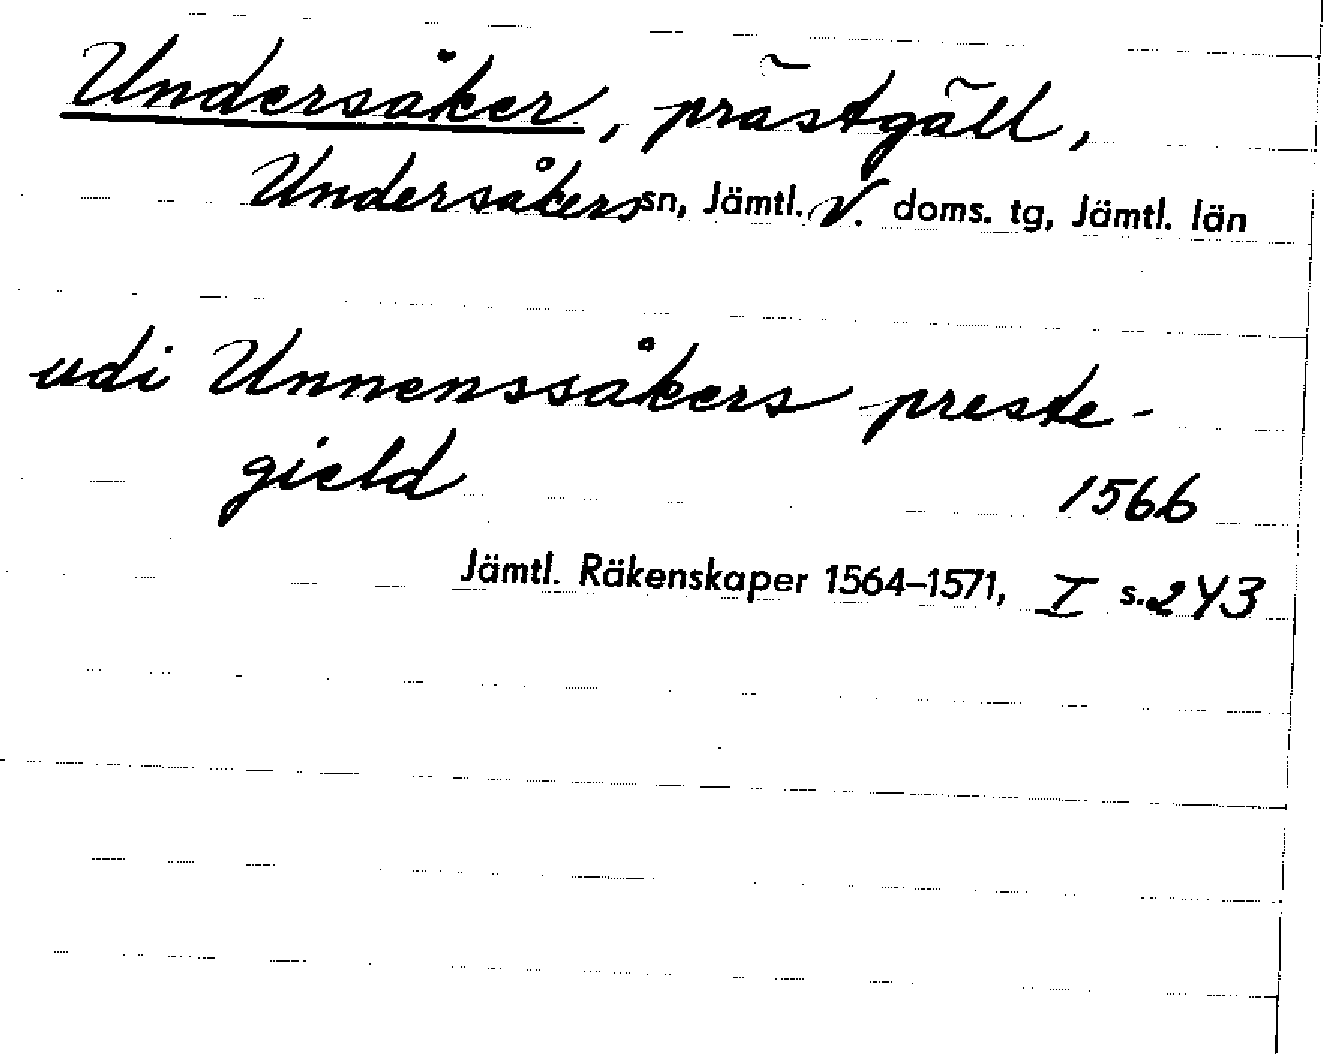 Undersåker, prästgäll,
Undersåkers sn, Jämtl. V. doms. tg, Jämtl. län
udi Unnenssåkers preste-
gield 1566
Jämtl. Räkenskaper 1564–1571, I s. 243